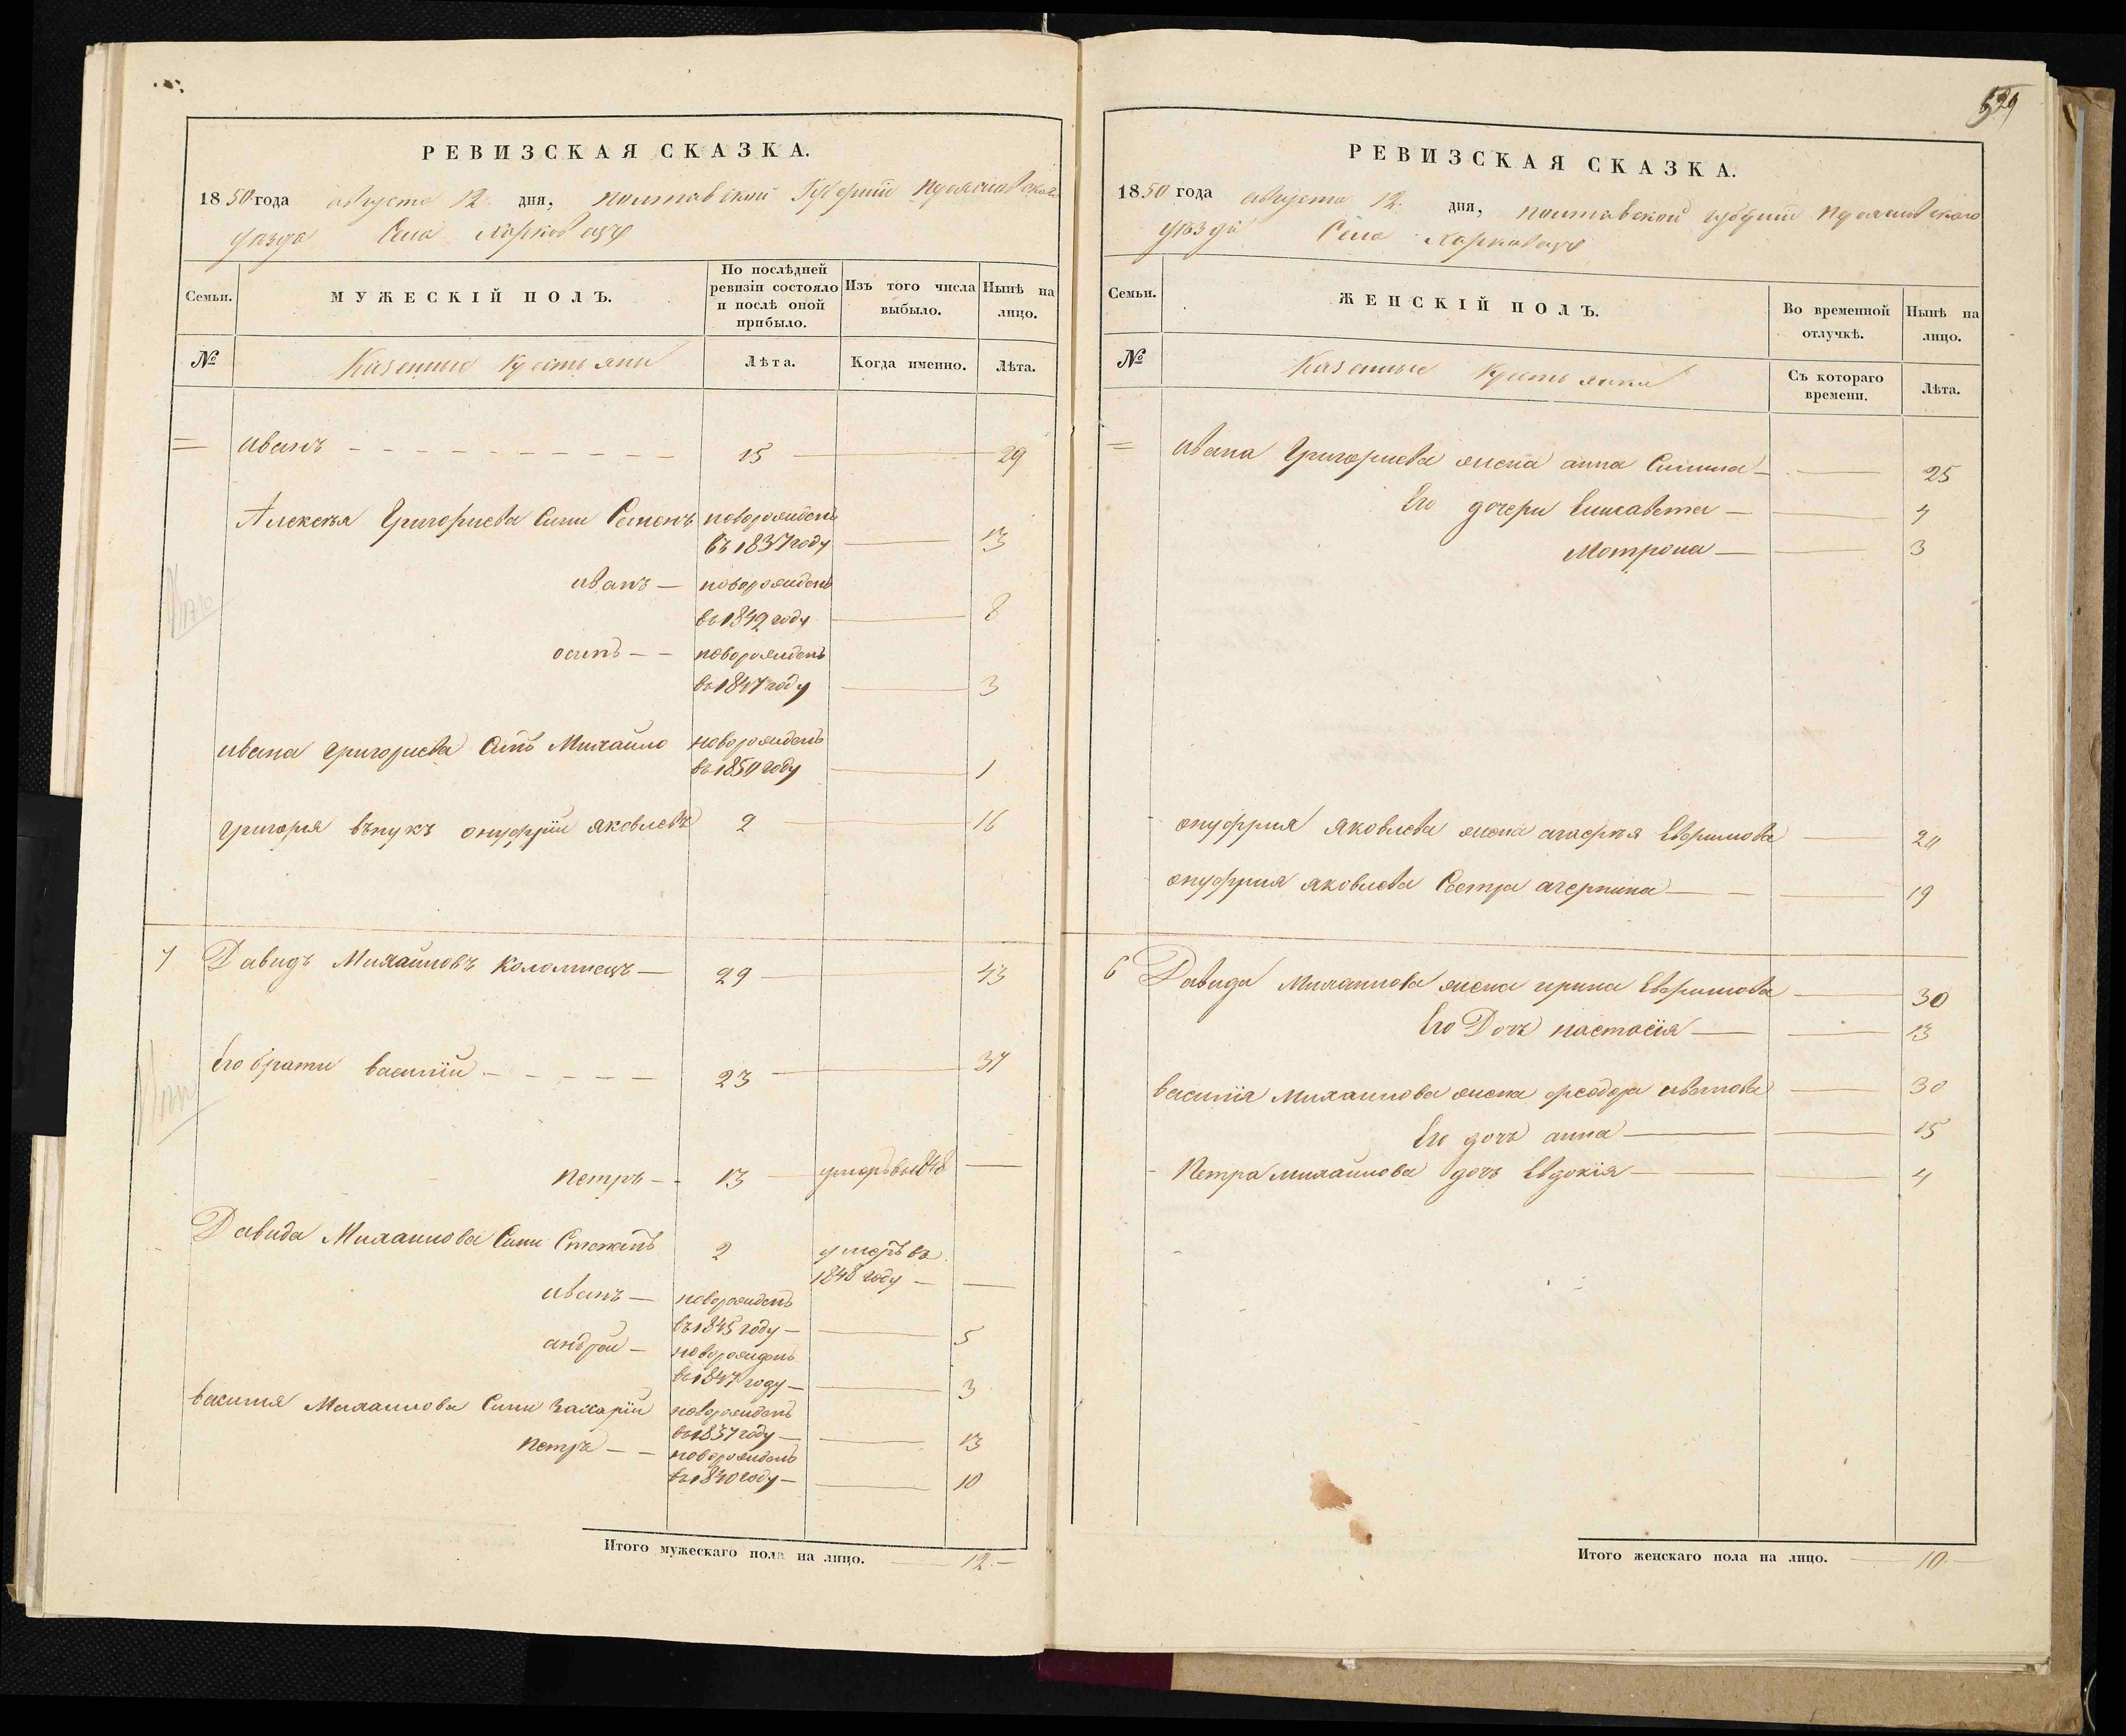 РЕВИЗСКАЯ СКАЗКА.
1850 года августа 12 дня, полтавской Губернии Переяславского
уезда Села Харковецъ
Семьи.
МУЖЕСКІЙ ПОЛЪ.
По послѣдней ревизіи состояло и послѣ оной прибыло.
Изъ того числа выбыло.
Нынѣ на лицо.
№
Казенные Крестьяне
Лѣта.
Когда именно.
Лѣта.
иванъ 15 29
Алексѣя Григориева Сини Семенъ новорожденъ
въ 1837 году 13
иванъ новорожденъ
въ 1842 году 8
осипъ новорожденъ
въ 1847 году 3
ивана Григориева Синъ Михайло новорожденъ
въ 1850 году 1
Григория внукъ онуфрий яковлевъ 2 16
7 Давидъ Михайловъ Коломиецъ 29 43
Его брати василий 23 37
Петръ 13 умеръ въ 1848
Давида Михаилова Сини Степанъ 2 умеръ въ
1848 году
иванъ новорожденъ
въ 1845 году 5
андрей новорожденъ
въ 1847 году 3
василия Михаилова Сини Захарий новорожденъ
въ 1837 году 13
петръ новорожденъ
въ 1840 году 10
Итого мужескаго пола на лицо. 12.
529
РЕВИЗСКАЯ СКАЗКА.
1850 года августа 12 дня, полтавской губернии Переяславского
уѣзда Села Харковецъ
Семьи.
ЖЕНСКІЙ ПОЛЪ.
Во временной отлучкѣ.
Нынѣ на лицо.
№
Казенные Крестьянки
Съ котораго времени.
Лѣта.
ивана Григориева жена анна 25
Его дочери Елисавета 4
Мотрона 3
онуфрия яковлева жена агафѣя Евфимова 20
онуфрия яковлева Сестра 19
6 Давида Михаилова жена ирина Евфимова 30
Его Дочъ настасія 13
василия Михаилова жена феодора иванова 30
Его дочъ анна 15
Петра михаилова дочъ Евдокія 4
Итого женскаго пола на лицо. 10.